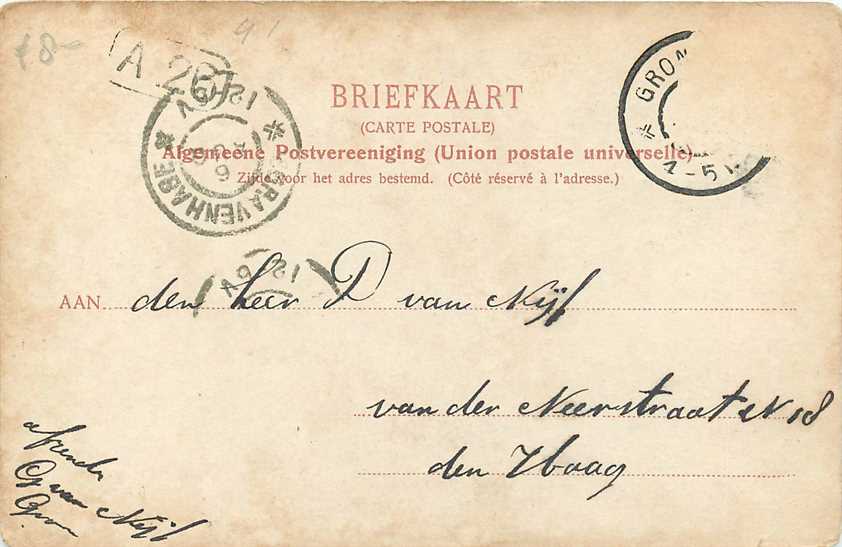 £8-
91
A 267
BRIEFKAART
(CARTE POSTALE)
Algemeene Postvereeniging (Union postale universelle)
Zijde voor het adres bestemd. (Côté réservé à l'adresse.)
GRAVENHAGE
12-1V
GRO
4-5N
12
AAN den heer P van Nijf
van der Neerstraat N 18
den Haag
afzender
G van Nijf
Gron